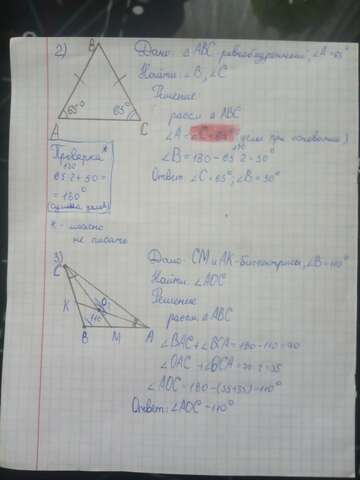 2)
B
65°
65°
A
C
Дано: △ABC - равнобедренный, ∠A=65°
Найти: ∠B, ∠C
Решение
рассм. △ABC
∠A = ∠C = 65° (углы при основании)
∠B = 180 - 65·2 = 50°
130
Ответ: ∠C = 65°, ∠B = 50°
Проверка*
130
65·2 + 50 =
= 180°
(сумма углов)
* - можно
не писать
3)
C
K
O
110
B
M
A
Дано: CM и AK - биссектрисы, ∠B = 110°
Найти: ∠AOC
Решение
рассм. △ABC
∠BAC + ∠BCA = 180 - 110 = 70
∠OAC + ∠OCA = 70:2 = 35
∠AOC = 180 - (35+35) = 110°
Ответ: ∠AOC = 110°